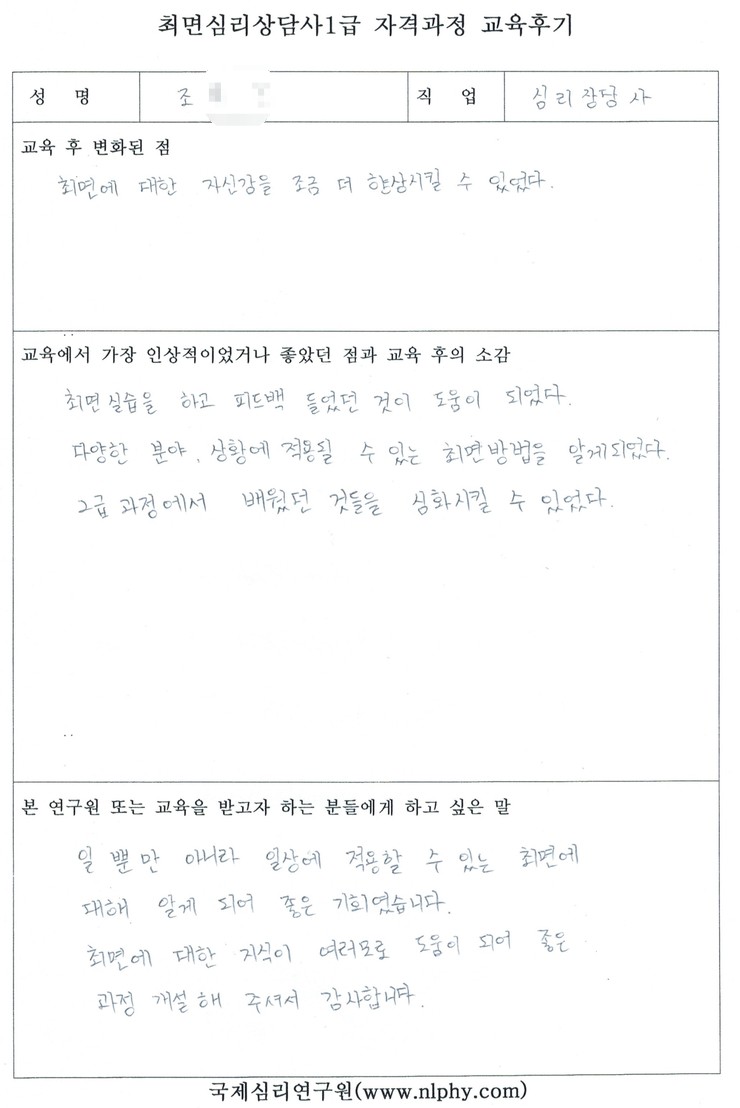 최면심리상담사1급 자격과정 교육후기
성 명 조 직 업 심리상담사
교육 후 변화된 점
최면에 대한 자신감을 조금 더 향상시킬 수 있었다.
교육에서 가장 인상적이었거나 좋았던 점과 교육 후의 소감
최면실습을 하고 피드백 들었던 것이 도움이 되었다.
다양한 분야, 상황에 적용될 수 있는 최면방법을 알게되었다.
2급 과정에서 배웠던 것들을 심화시킬 수 있었다.
본 연구원 또는 교육을 받고자 하는 분들에게 하고 싶은 말
일 뿐만 아니라 일상에 적용할 수 있는 최면에
대해 알게 되어 좋은 기회였습니다.
최면에 대한 지식이 여러모로 도움이 되어 좋은
과정 개설해 주셔서 감사합니다.
국제심리연구원(www.nlphy.com)